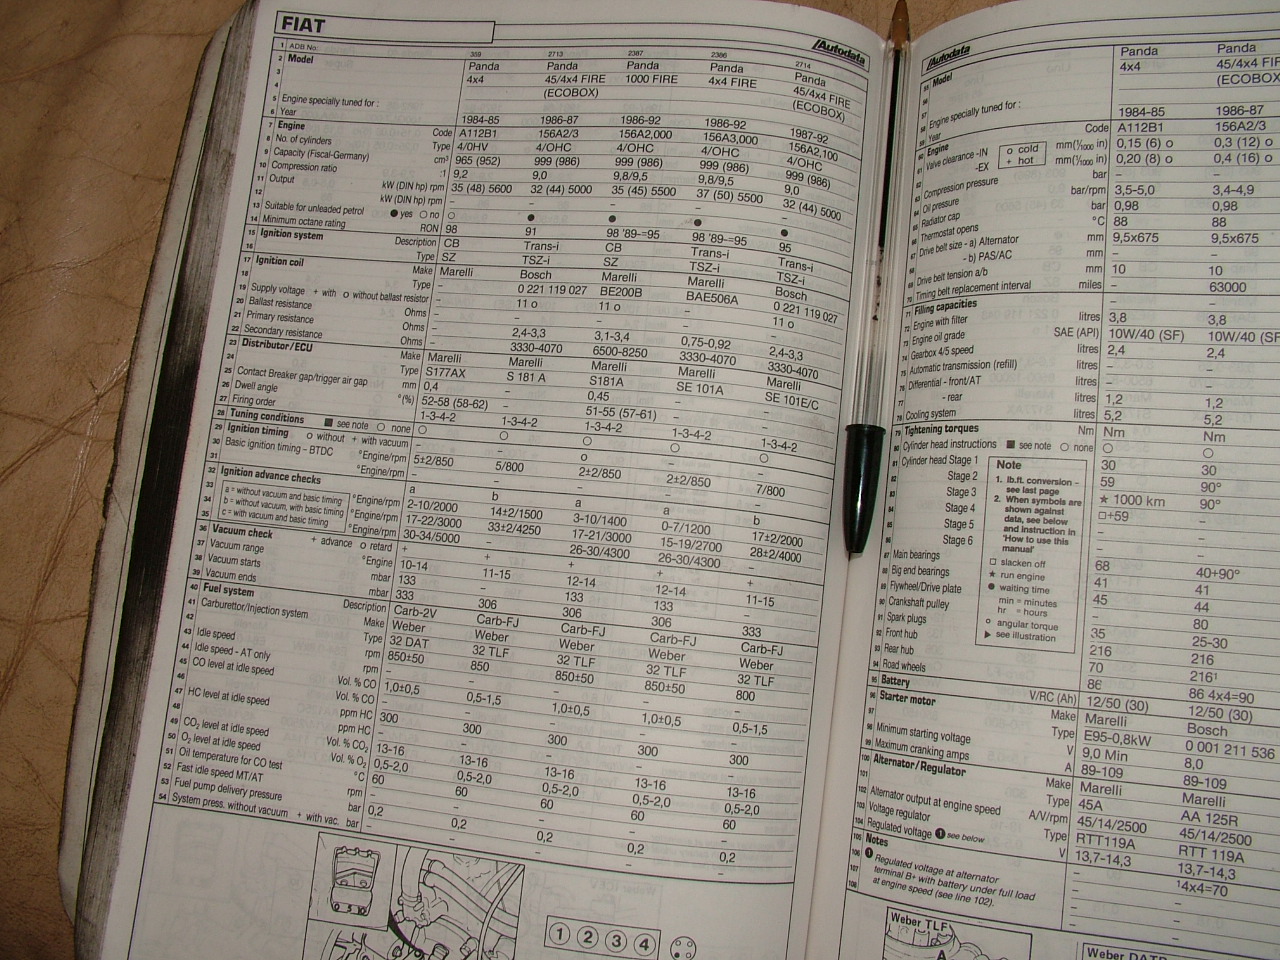 FIAT
Autodata
1 ADB No: 359 2713 2387 2386 2714
2 Model Panda Panda Panda Panda Panda
3 4x4 45/4x4 FIRE 1000 FIRE 4x4 FIRE 45/4x4 FIRE
4 (ECOBOX) (ECOBOX)
5 Engine specially tuned for :
6 Year 1984-85 1986-87 1986-92 1986-92 1987-92
7 Engine Code A112B1 156A2/3 156A2,000 156A3,000 156A2,100
8 No. of cylinders Type 4/OHV 4/OHC 4/OHC 4/OHC 4/OHC
9 Capacity (Fiscal-Germany) cm³ 965 (952) 999 (986) 999 (986) 999 (986) 999 (986)
10 Compression ratio :1 9,2 9,0 9,8/9,5 9,8/9,5 9,0
11 Output kW (DIN hp) rpm 35 (48) 5600 32 (44) 5000 35 (45) 5500 37 (50) 5500 32 (44) 5000
12 kW (DIN hp) rpm – – – – –
13 Suitable for unleaded petrol ● yes ○ no ○ ● ● ● ●
14 Minimum octane rating RON 98 91 98 '89-=95 98 '89-=95 95
15 Ignition system Description CB Trans-i CB Trans-i Trans-i
16 Type SZ TSZ-i SZ TSZ-i TSZ-i
17 Ignition coil Make Marelli Bosch Marelli Marelli Bosch
18 Type – 0 221 119 027 BE200B BAE506A 0 221 119 027
19 Supply voltage + with o without ballast resistor – 11 o 11 o 11 o
20 Ballast resistance Ohms – – – – –
21 Primary resistance Ohms – 2,4-3,3 3,1-3,4 0,75-0,92 2,4-3,3
22 Secondary resistance Ohms – 3330-4070 6500-8250 3330-4070 3330-4070
23 Distributor/ECU Make Marelli Marelli Marelli Marelli Marelli
Type S177AX S 181 A S181A SE 101A SE 101E/C
25 Contact Breaker gap/trigger air gap mm 0,4 – 0,45 – –
26 Dwell angle °(%) 52-58 (58-62) – 51-55 (57-61) – –
27 Firing order 1-3-4-2 1-3-4-2 1-3-4-2 1-3-4-2 1-3-4-2
28 Tuning conditions ■ see note ○ none ○ ○ ○ ○ ○
29 Ignition timing o without + with vacuum
30 Basic ignition timing - BTDC °Engine/rpm 5±2/850 5/800 2±2/850 2±2/850 7/800
31 °Engine/rpm
32 Ignition advance checks a b a a b
33 a = without vacuum and basic timing °Engine/rpm 2-10/2000 14±2/1500 3-10/1400 0-7/1200 17±2/2000
34 b = without vacuum, with basic timing °Engine/rpm 17-22/3000 33±2/4250 17-21/3000 15-19/2700 28±2/4000
35 c = with vacuum and basic timing °Engine/rpm 30-34/5000 – 26-30/4300 26-30/4300 –
36 Vacuum check + advance o retard + + + + +
37 Vacuum range °Engine 10-14 11-15 12-14 12-14 11-15
38 Vacuum starts mbar 133 – 133 133 –
39 Vacuum ends mbar 333 306 306 306 333
40 Fuel system Description Carb-2V Carb-FJ Carb-FJ Carb-FJ Carb-FJ
41 Carburettor/Injection system Make Weber Weber Weber Weber Weber
Type 32 DAT 32 TLF 32 TLF 32 TLF 32 TLF
43 Idle speed rpm 850±50 850 850±50 850±50 800
44 Idle speed - AT only rpm – – – – –
45 CO level at idle speed Vol. % CO 1,0±0,5 0,5-1,5 1,0±0,5 1,0±0,5 0,5-1,5
46 Vol. % CO – – – – –
47 HC level at idle speed ppm HC 300 300 300 300 300
48 ppm HC – – – – –
49 CO₂ level at idle speed Vol. % CO₂ 13-16 13-16 13-16 13-16 13-16
50 O₂ level at idle speed Vol. % O₂ 0,5-2,0 0,5-2,0 0,5-2,0 0,5-2,0 0,5-2,0
51 Oil temperature for CO test °C 60 60 60 60 60
52 Fast idle speed MT/AT rpm – – – – –
53 Fuel pump delivery pressure bar 0,2 0,2 0,2 0,2 0,2
54 System press. without vacuum + with vac. bar – – – – –
1 2 3 4
Autodata
Model Panda Panda
4x4 45/4x4 FIRE
(ECOBOX)
Engine specially tuned for :
Year 1984-85 1986-87
Engine Code A112B1 156A2/3
Valve clearance -IN o cold mm(1/1000 in) 0,15 (6) o 0,3 (12) o
-EX + hot mm(1/1000 in) 0,20 (8) o 0,4 (16) o
Compression pressure bar – –
Oil pressure bar/rpm 3,5-5,0 3,4-4,9
Radiator cap bar 0,98 0,98
Thermostat opens °C 88 88
Drive belt size - a) Alternator mm 9,5x675 9,5x675
- b) PAS/AC mm – –
Drive belt tension a/b mm 10 10
Timing belt replacement interval miles – 63000
Filling capacities
Engine with filter litres 3,8 3,8
Engine oil grade SAE (API) 10W/40 (SF) 10W/40 (SF)
Gearbox 4/5 speed litres 2,4 2,4
Automatic transmission (refill) litres – –
Differential - front/AT litres – –
- rear litres 1,2 1,2
Cooling system litres 5,2 5,2
Tightening torques Nm Nm Nm
Cylinder head instructions ■ see note ○ none ○ ○
Cylinder head Stage 1 30 30
Stage 2 59 90°
Stage 3 ★ 1000 km 90°
Stage 4 □+59 –
Stage 5 – –
Stage 6 – –
Note
1. lb.ft. conversion - see last page
2. When symbols are shown against data, see below and instruction in 'How to use this manual'
□ slacken off
★ run engine
● waiting time
min = minutes
hr = hours
o angular torque
▶ see illustration
Main bearings 68 40+90°
Big end bearings 41 41
Flywheel/Drive plate 45 44
Crankshaft pulley – 80
Spark plugs 35 25-30
Front hub 216 216
Rear hub 70 216¹
Road wheels 86 86 4x4=90
Battery V/RC (Ah) 12/50 (30) 12/50 (30)
Starter motor Make Marelli Bosch
Type E95-0,8kW 0 001 211 536
Minimum starting voltage V 9,0 Min 8,0
Maximum cranking amps A 89-109 89-109
Alternator/Regulator Make Marelli Marelli
Type 45A AA 125R
Alternator output at engine speed A/V/rpm 45/14/2500 45/14/2500
Voltage regulator Type RTT119A RTT 119A
Regulated voltage ❶ see below V 13,7-14,3 13,7-14,3
Notes – ¹4x4=70
❶ Regulated voltage at alternator
terminal B+ with battery under full load
at engine speed (see line 102).
Weber TLF
A
Weber DATR